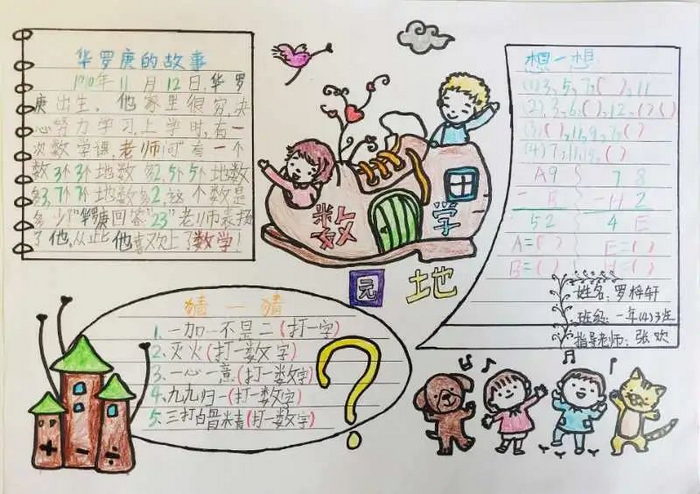 华罗庚的故事
1910年11月12日,华罗
庚出生。他家里很穷,决
心努力学习,上学时,有一
次数学课,老师问"有一个
数3个3个地数多2,5个5个地数
多3,7个7个地数多2,这个数是
多少"华罗庚回答"23"老师表扬
了他,从此他喜欢上了数学!
数学
园地
想一想
(1)3,5,7,( ),11
(2),3,6,( ),12,( )( )
(3)( ),11,9,7,( )
(4)7,11,15,( )
A9 78
-B -H2
52 4E
A=( ) E=( )
B=( ) H=( )
姓名:罗梓轩
班级:一年(4)班
指导老师:张欢
猜一猜
1.一加一不是二(打一字)
2.灭火(打一数字)
3.一心一意(打一数字)
4.九九归一(打一数字)
5.三打白骨精(打一数字)